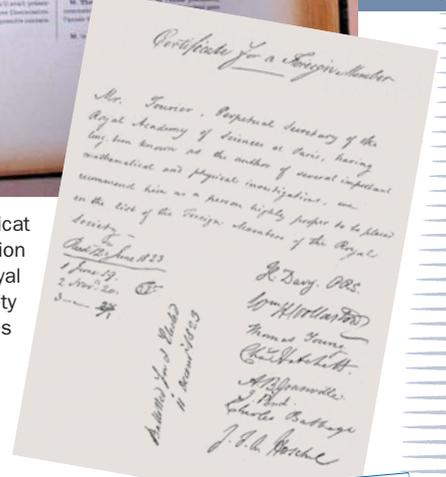 M. The
Certificate for a Foreign Member
Mr. Fourier, Perpetual Secretary of the
Royal Academy of Sciences at Paris, having
long been known as the author of several important
mathematical and physical investigations, we
recommend him as a person highly proper to be placed
on the list of the Foreign Members of the Royal
Society
June 1823
1 June 19.
2 Nov. 20.
3
Balloted for & Elected
11 December 1823
H. Davy. PRS.
Wm H Wollaston
Thomas Young
Chas Hatchett.
A B Granville
J. Pond.
Charles Babbage
J. F. W. Herschel
icat
ion
yal
ty
s